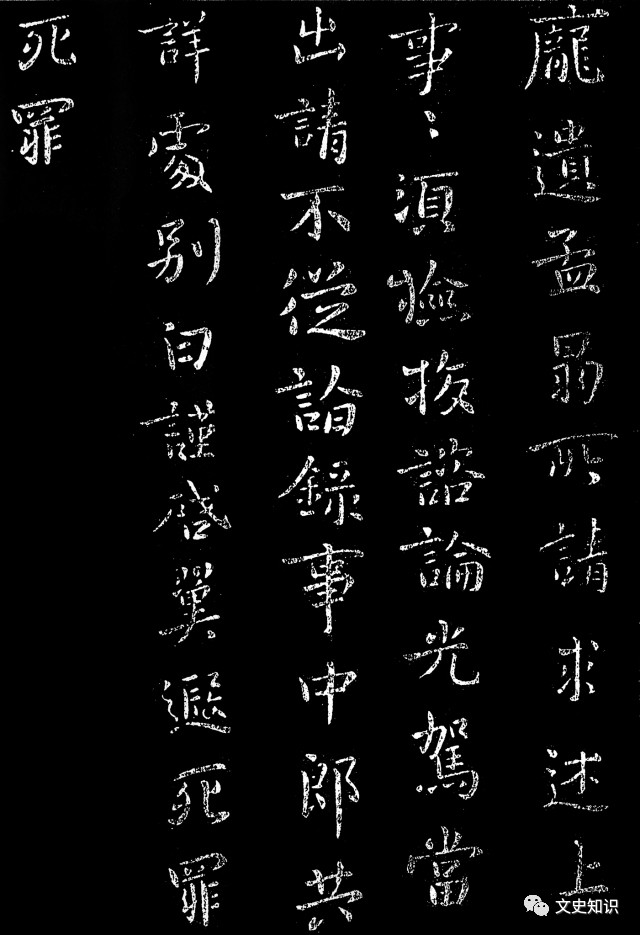 龐遺孟昻所請求述上
事〻須檢挍諮論光駕當
出請不從諮錄事中郎共
詳處別白謹啓翼遯死罪
死罪
文史知识